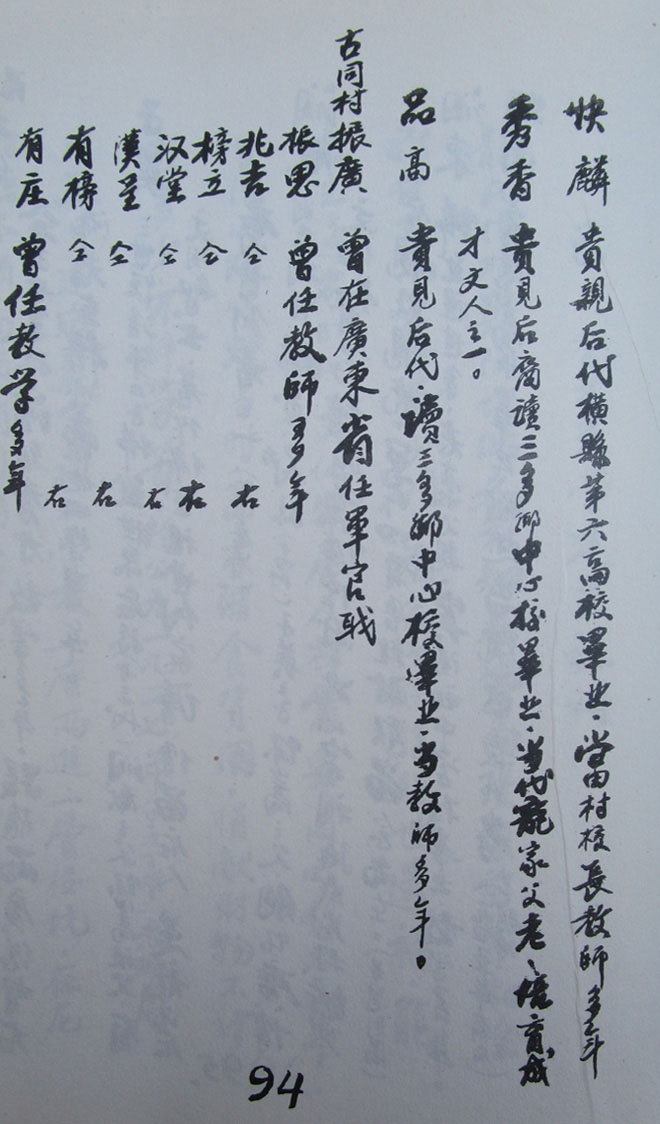 快麟 貴親后代橫縣第六高校畢业、当田村校長教師多年
秀香 貴見后裔讀三多鄉中心校畢业、当代龐家父老、培育成
才文人之一。
品高 貴見后代、讀三多鄉中心校畢业、当教師多年。
古同村振廣 曾在廣東省任軍官职
振思 曾任教師多年
兆吉 仝 右
榜立 仝 右
汉棠 仝 右
漢呈 仝 右
有榜 仝 右
有庄 曾任教学多年
94